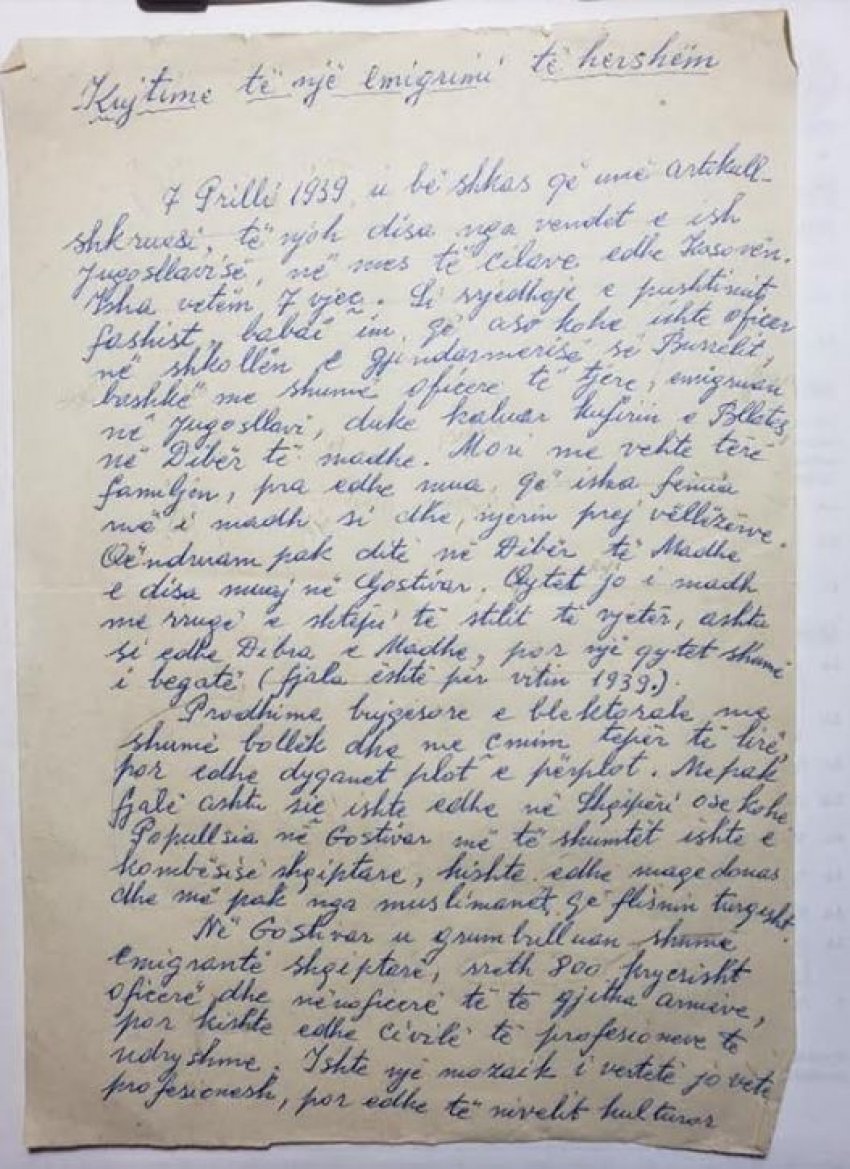 Kujtime të një emigrimi të hershëm
7 Prilli 1939 u bë shkas që unë artikull-
shkruesi, të njoh disa nga vendet e ish
Jugosllavisë, në mes të cilave edhe Kosovën.
Isha vetëm 7 vjeç. Si rrjedhojë e pushtimit
fashist, babai im, që aso kohe ishte oficer
në shkollën e Gjindarmerisë së Burrelit,
bashkë me shumë oficerë të tjerë, emigruan
në Jugosllavi, duke kaluar kufirin e Bllatës,
në Dibër të madhe. Mori me vehte tërë
familjen, pra edhe mua, që isha fëmia
më i madh si dhe, njerin prej vëllezërve.
Qëndruam pak ditë në Dibër të Madhe
e disa muaj në Gostivar. Qytet jo i madh
me rrugë e shtëpi të stilit të vjetër, ashtu
si edhe Dibra e Madhe, por një qytet shumë
i begatë (fjala është për vitin 1939.).
Prodhime bujqesore e blektorale me
shumë bollëk dhe me çmim tepër të lirë,
por edhe dyqanet plot e përplot. Me pak
fjalë ashtu siç ishte edhe në Shqipëri ose kohe.
Popullsia në Gostivar më të shumtët ishte e
kombësisë shqiptare, kishte edhe maqedonas
dhe më pak nga muslimanët që flisnin turqisht.
Në Gostivar u grumbulluan shumë
emigrantë shqiptarë, rreth 800 frycrisht
oficerë dhe nënoficerë të të gjitha armëve,
por kishte edhe civilë të profesioneve të
ndryshme. Ishte një mozaik i vertetë jo vetë
profesionesh, por edhe të nivelit kulturor